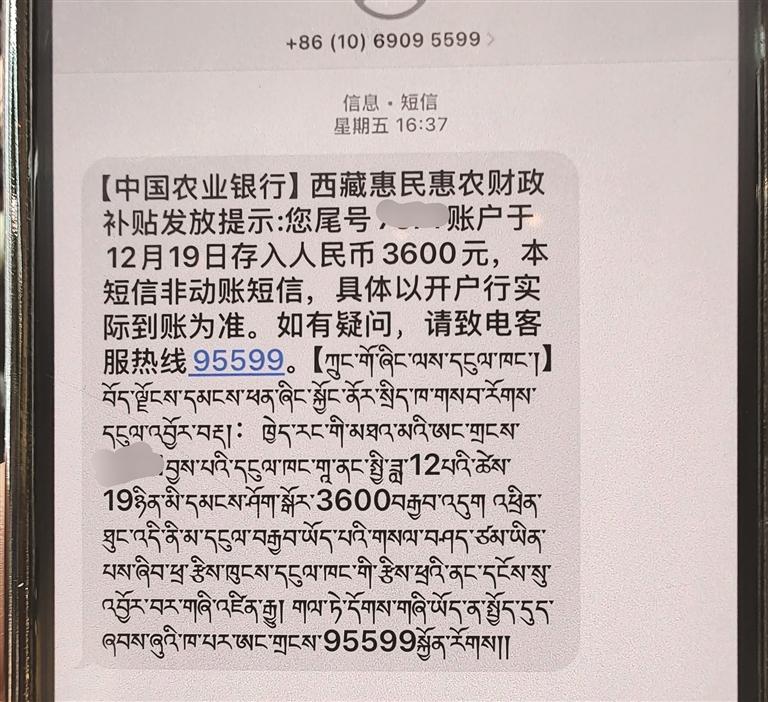 +86 (10) 6909 5599
信息・短信
星期五 16:37
【中国农业银行】西藏惠民惠农财政
补贴发放提示:您尾号 账户于
12月19日存入人民币3600元，本
短信非动账短信，具体以开户行实
际到账为准。如有疑问，请致电客
服热线95599。【ཀྲུང་གོ་ཞིང་ལས་དངུལ་ཁང་།】
བོད་ལྗོངས་དམངས་ཕན་ཞིང་སྐྱོང་ནོར་སྲིད་ཁ་གསབ་རོགས་
དངུལ་འབྱོར་བརྡ།： ཁྱེད་རང་གི་མཐའ་མའི་ཨང་གྲངས་
བྱས་པའི་དངུལ་ཁང་གཱ་ནང་སྤྱི་ཟླ་12པའི་ཚེས་
19ཉིན་མི་དམངས་ཤོག་སྒོར་3600བརྒྱབ་འདུག འཕྲིན་
ཐུང་འདི་ནི་མ་དངུལ་བརྒྱབ་ཡོད་པའི་གསལ་བཤད་ཙམ་ཡིན་
པས་ཞིབ་ཕྲ་རྩིས་ཁུངས་དངུལ་ཁང་གི་རྩིས་ཁྲའི་ནང་དངོས་སུ་
འབྱོར་བར་གཞི་འཛིན་རྒྱུ། གལ་ཏེ་དོགས་གཞི་ཡོད་ན་སྤྱོད་དུད་
ཞབས་ཞུའི་ཁ་པར་ཨང་གྲངས་95599སྐྱོན་རོགས།།